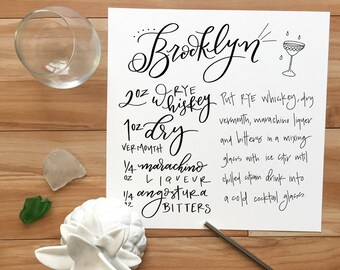 Brooklyn
2 oz RYE
whiskey
1 oz dry
VERMOUTH
1/4 oz marachino
LIQUEUR
1/4 oz angostura
BITTERS
Put RYE whiskey, dry
vermouth, marachino liquer
and bitters in a mixing
glass with ice. Stir until
chilled. Strain drink into
a cold cocktail glass.